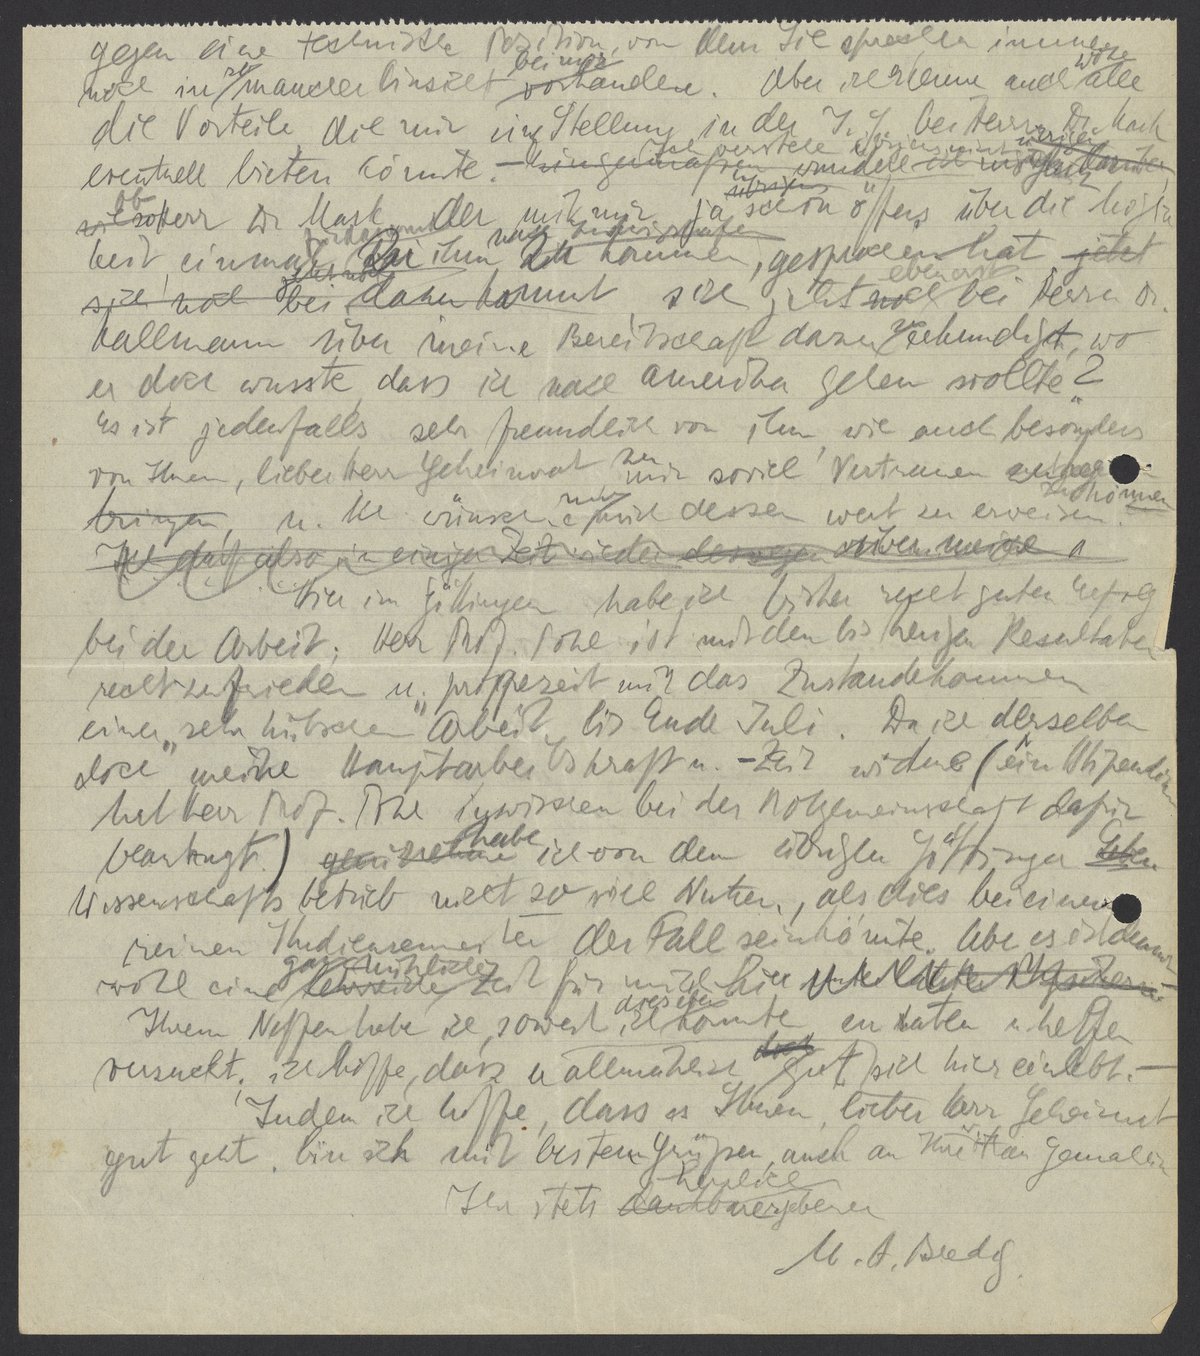 gegen eine technische Position, von dem Sie sprechen immer
noch in so mancher Hinsicht bei mir vorhanden. Aber ich erkenne auch wohl alle
die Vorteile die mir eine Stellung in der I.G. bei Herrn Dr. Mark
eventuell bieten könnte. –
ob Herr Dr. Mark, der mit mir ja schon öfters über die Möglich
keit, einmal zu ihm zu kommen, gesprochen hat jetzt
sich noch bei dazu kommt sich jetzt eben erst bei Herrn Dr.
Kallmann über meine Bereitschaft dazu erkundigt, wo
er doch wusste, dass ich nach Amerika gehen wollte?
Es ist jedenfalls sehr freundlich von ihm, wie auch besonders
von Ihnen, lieber Herr Geheimrat zu mir soviel Vertrauen
bringen, u. ich wünsche nur mich dessen wert zu erweisen zu können.
Ich darf also in einiger Zeit wieder deswegen
Hier in Göttingen habe ich bisher recht guten Erfolg
bei der Arbeit; Herr Prof. Pohl ist mit den bisherigen Resultaten
recht zufrieden u. prophezeit mir das Zustandekommen
einer „sehr hübschen“ Arbeit bis Ende Juli. Da ich derselben
doch meine Hauptarbeitskraft u. -Zeit widme (ein Stipendium
hat Herr Prof. Pohl inzwischen bei der Notgemeinschaft dafür
beantragt.) habe ich von dem übrigen Göttinger Leben
Wissenschaftsbetrieb nicht so viel Nutzen, als dies bei einem
reinen Studiensemester der Fall sein könnte. Aber es ist dennoch
wohl eine ganz nützliche Zeit für mich hier
Ihrem Neffen habe ich, soweit ich dies eben konnte zu raten u. helfen
versucht; ich hoffe, dass er allmählich gut sich hier einlebt. –
Indem ich hoffe, dass es Ihnen, lieber Herr Geheimrat
gut geht, bin ich mit besten Grüßen, auch an Ihre Frau Gemahlin
Ihr stets herzlich dankbar ergebener
M. A. Bredig.